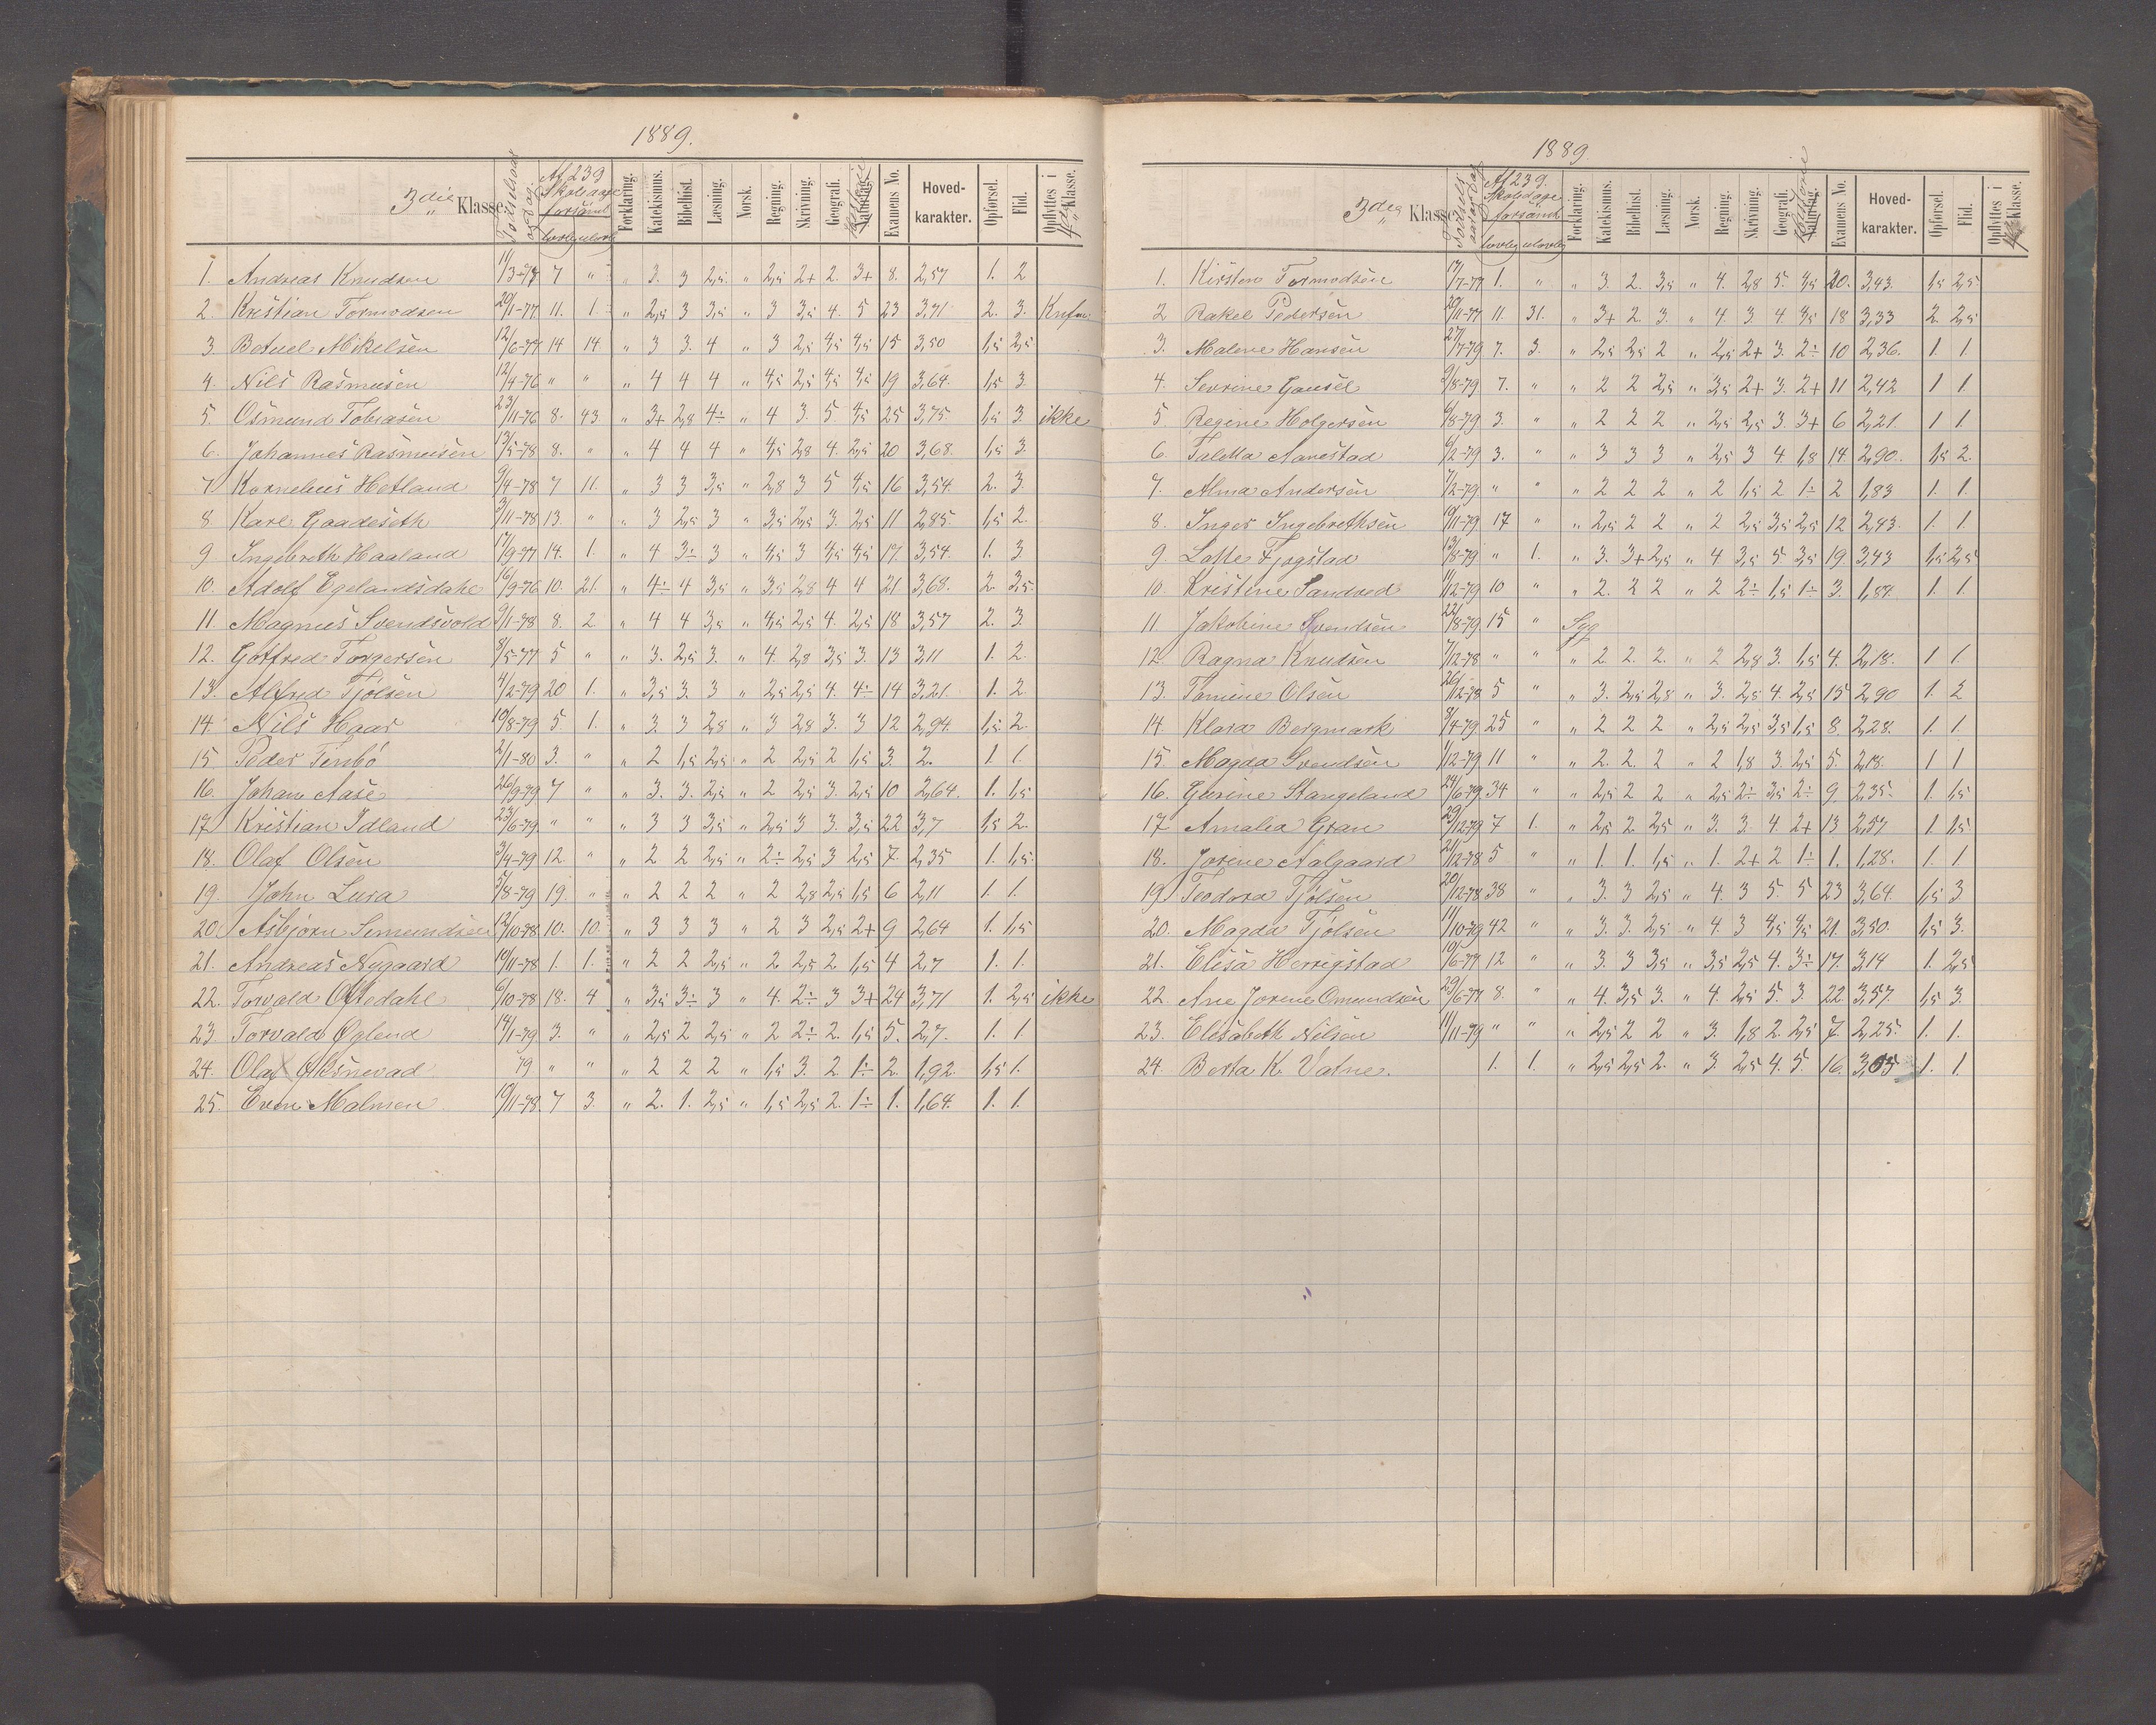 1889.
3die Klasse. Fødselsaar og dag. Af 239 Skoledage forsømt lovlig ulovlig Forklaring. Katekismus. Bibelhist. Læsning. Norsk. Regning. Skrivning. Geografi. Naturfag. Examens No. Hoved-karakter. Opførsel. Flid. Opflyttes i 4de Klasse.
1. Andreas Knudsen 11/3-77 7 " " 3. 3 2,5 " 2,5 2+ 2. 3+ 8. 2,57 1. 2
2. Kristian Tormodsen 20/1-77 11. 1. " 2,5 3 3,5 " 3 3,5 4. 5 23 3,71 2. 3.
3 Betuel Mikelsen 12/6-77 14 14 " 3 3. 4 " 3 2,5 4,5 4,5 15 3,50 1,5 2,5
4. Nils Rasmusen 12/4-76 " " " 4 4 4 " 4,5 2,5 4,5 4,5 19 3,64. 1,5 3.
5. Osmund Tobiasen 23/11-76 8. 43. " 3+ 2,8 4÷ " 4 3. 5 4,5 25 3,75 1,5 3. ikke
6. Johannes Rasmusen 13/5-78 8. " " 4 4 4 " 4,5 2,8 4. 2,5 20 3,68. 1,5 3.
7. Kornelius Hetland 9/4-78 7 11. " 3 3 3,5 " 2,8 3 5 4,5 16 3,54. 2. 3.
8. Karl Gaadeseth 3/11-78 13. " " 3 2,5 3 " 3,5 2,5 3. 2,5 11 2,85. 1,5 2.
9. Ingebreth Haaland 17/9-77 14. 1. " 4 3÷ 3 " 4,5 3 4,5 4,5 17. 3,54. 1. 3
10. Adolf Egelandsdahl 16/9-76 10. 21. " 4÷ 4 3,5 " 3,5 2,8 4 4 21 3,68. 2. 3,5.
11. Magnus Svendsvold 9/1-78 8. 2 " 4 4 3,5 " 4,5 2,5 4. 2,5 18 3,57 2. 3
12. Gotfred Torgersen 8/5-77 5 " " 3. 2,5 3. " 4. 2,8 3,5 3. 13 3,11 1. 2.
13. Alfred Tjølsen 4/2-79 20 1. " 3,5 3. 3 " 2,5 2,5 4. 4÷ 14 3,21. 1. 2
14. Nils Haar 19/8-79 5. 1. " 3. 3 2,8 " 3 2,8 3. 3 12 2,94. 1,5 2.
15. Peder Timbø 2/1-80 3. " " 2 1,5 2,5 " 2 2,5 2 1,5 3. 2. 1. 1.
16. Johan Aase 26/9-79 7 " " 3. 3. 2,5 " 2 2,5 3. 2,5 10 2,64. 1. 1,5
17 Kristian Idland 23/6-79. " " " 3 3 3,5 " 2,5 3 3. 3,5 22 3,7 1,5 2.
18. Olaf Olsen 3/4-79 12. " " 2 2 2,5 " 2÷ 2,5 3 2,5 7. 2,35 1. 1,5.
19. John Lura 5/8-79 19. " " 2 2 2 " 2 2,8 2,5 1,5 6 2,11 1. 1.
20. Asbjørn Simundsen 12/10-78 10. 10. " 3 3 3 " 2 3 2,5 2+ 9 2,64 1. 1,5
21. Andreas Nygaard 14/11-78 1. 1. " 2 2 2,5 " 2 2,5 2 1,5 4 2,7 1. 1.
22. Torvald Oftedahl 6/10-78 18. 4 " 3,5 3÷ 3 " 4. 2÷ 3 3+ 24 3,71 1. 2,5 ikke
23. Torvald Øglend 14/1-79 3. " " 2,5 2 2,5 " 2 2÷ 2. 1,5 5. 2,7. 1. 1
24. Olaf Øksnevad 79 " " " 2 2 2 " 1,5 3. 2. 1÷ 2. 1,92. 1,5 1.
25. Even Malmen 19/11-78. 7 3. " 2. 1. 2,5 " 1,5 2,5 2. 1÷ 1. 1,64. 1. 1.
1889.
3die Klasse. Fødselsaar og dag Af 239. Skoledage forsømt lovlig ulovlig Forklaring. Katekismus. Bibelhist. Læsning. Norsk. Regning. Skrivning. Geografi. Naturfag. Examens No. Hoved-karakter. Opførsel. Flid. Opflyttes i Klasse.
1. Kirsten Tormodsen 17/7-77 1. " " 3. 2. 3,5 " 4. 2,8 5. 4,5 20. 3,43. 1,5 2,5
2 Rakel Pedersen 20/11-77 11. 31. " 3+ 2. 3. " 4. 3. 4. 4,5 18 3,33 2. 2,5
3. Malene Hansen 27/7-79 7. 3. " 2,5 2,5 2 " 2,5 2+ 3. 2÷ 10 2,36. 1. 1.
4. Sevrine Gausel 9/8-79 7. " " 2 2 2,5 " 3,5 2+ 3. 2+ 11 2,42 1 1.
5 Regine Holgersen 6/8-79 3. " " 2 2 2 " 2,5 2,5 3. 3+ 6 2,21. 1 1.
6. Taletta Aarrestad 6/2-79 3. " " 3 3 3 " 2,5 3 4. 1,8 14. 2,90. 1,5 2.
7. Alma Andersen 7/2-79 " " " 2 2 2 " 2 1,5 2 1÷ 2 1,83 1. 1.
8. Inger Ingebrethsen 19/11-79 17 " " 2,5 2 2 " 2 2,5 3,5 2,5 12 2,43. 1. 1.
9. Lotte Fjogstad 13/8-79 " 1. " 3. 3+ 2,5 " 4 3,5 5 3,5 19. 3,43 1,5 2,5
10. Kristine Sandved 11/12-79 10 " " 2. 2 2 " 2 2÷ 1,5 1÷ 3. 1,87. 1. 1.
11 Jakobine Svendsen 22/8-79. 15 " Syg
12. Ragna Knudsen 7/12-78 " " " 2. 2. 2. " 2 2,8 3. 1,5 4. 2,18. 1 1.
13. Tomine Olsen 26/12-78 5 " " 3. 2,5 2,8 " 3. 2,5 4. 2,5 15 2,90 1. 2
14. Klara Bergmark 8/4-79. 25 " " 2 2 2 " 2,5 2,5 3,5 1,5 8. 2,28. 1. 1.
15. Magda Svendsen 1/12-79 11 " " 2. 2. 2 " 2 1,8 3. 2,5 5. 2,18. 1 1
16. Gurine Stangeland 24/6-79. 34 " " 2,5 2 2 " 2,5 2÷ 3,5 2÷ 9. 2,35. 1. 1,5
17 Amalia Gran 29/12-79 7 1. " 2,5 2. 2,5 " 3. 3. 4. 2+ 13 2,57 1. 1,5
18. Jorine Aalgaard 21/12-78 5 " " 1. 1. 1,5 " 1. 2+ 2 1÷ 1. 1,28. 1. 1.
19. Teodora Tjølsen 20/12-78 38 " " 3. 3 2,5 " 4. 3 5. 5 23 3,64. 1,5 3
20. Magda Tjølsen 11/10-79 42 " " 3. 3. 2,5 " 4. 3 4,5 4,5 21. 3,50. 1,5 3.
21. Elisa Herrigstad 19/6-77 12 " " 3. 3 3,5 " 3,5 2,5 4. 3÷ 17. 3,14 1. 2,5
22. Ane Jorine Omundsen 29/6-77 8. " " 4. 3,5 3. " 4. 2,5 5. 3. 22 3,57. 1,5 3.
23. Elisabeth Nilsen 11/11-79. " " " 2,5 2 2 " 3. 1,8 2. 2,5 7. 2,25. 1. 1.
24. Berta K. Vatne. 1. 1. " 2,5 2,5 2. " 3. 2,5 4. 5. 16. 3,05 1. 1.